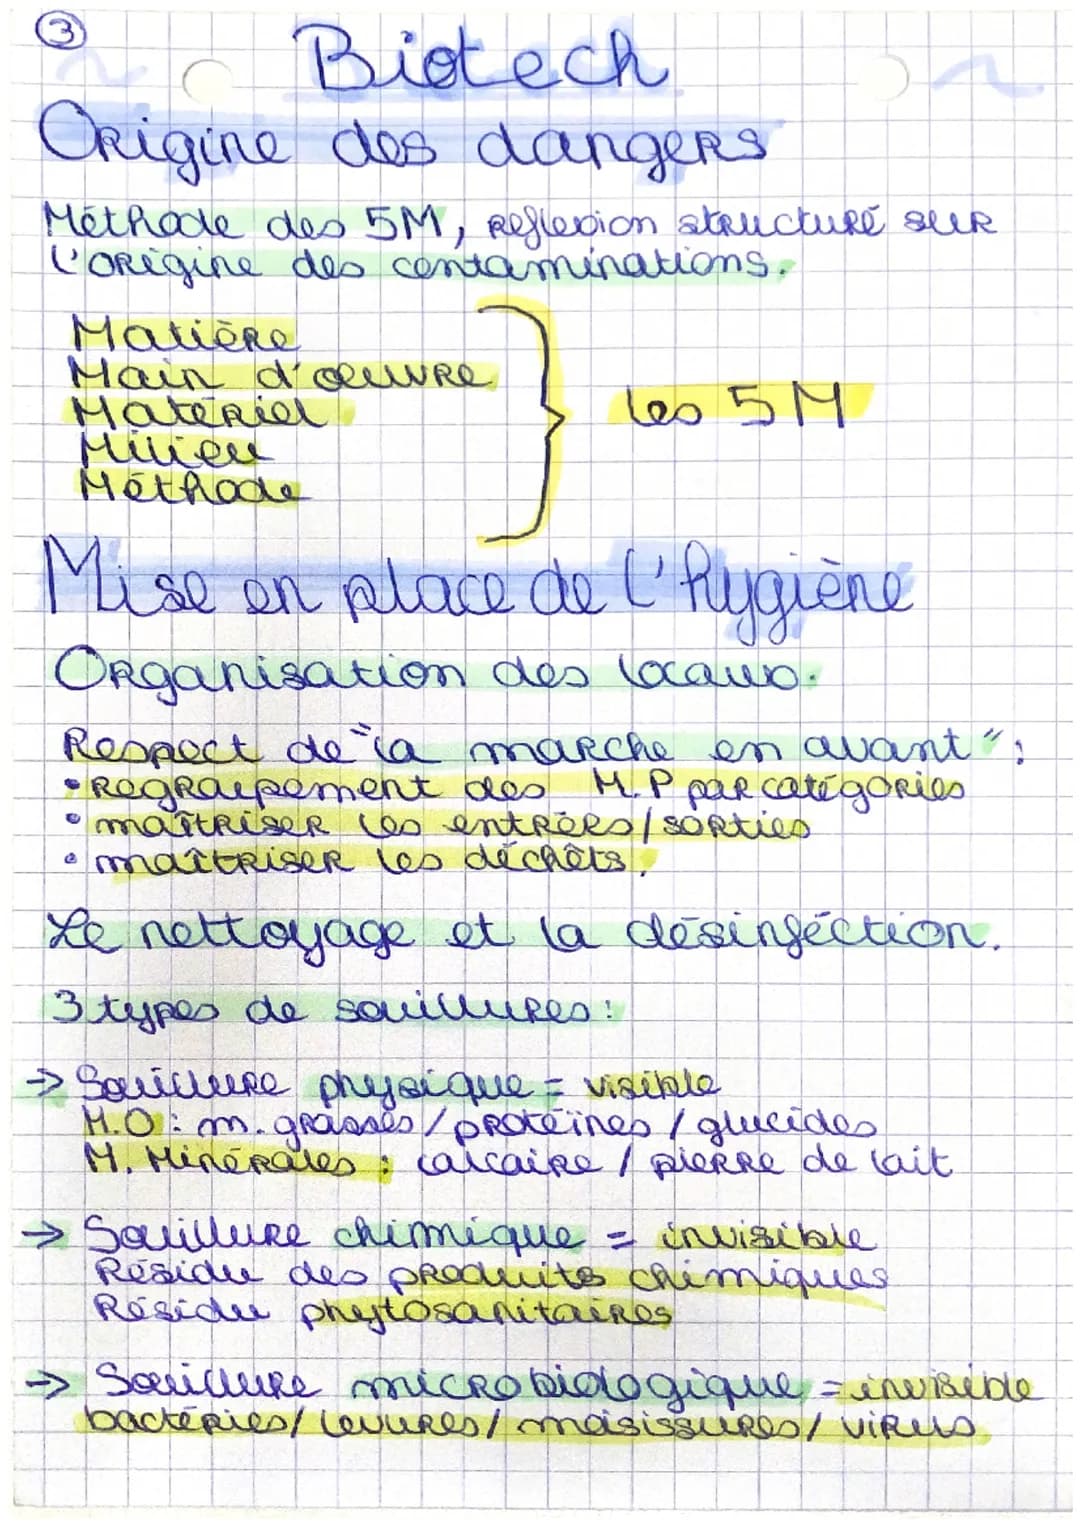 3
Biotech
Origine des dangers
Méthode des 5M, reflexion structuré sur
l'origine des contaminations.
Matière
Main d'œuvre
Matériel
Milieu
Méthode
les 5M
Mise en place de l'hygiène
Organisation des locaux.
Respect de "la marche en avant" :
• regroupement des M.P par catégories
• maîtriser les entrées/sorties
• maîtriser les déchêts.
Le nettoyage et la désinféction.
3 types de souillures :
→ Souillure physique = visible
M.O : m. grasses / protéïnes / glucides
M. Minérales : calcaire / pierre de lait
→ Souillure chimique = invisible
Résidu des produits chimiques
Résidu phytosanitaires
→ Souillure microbiologique = invisible
bactéries / levures / moisissures / virus